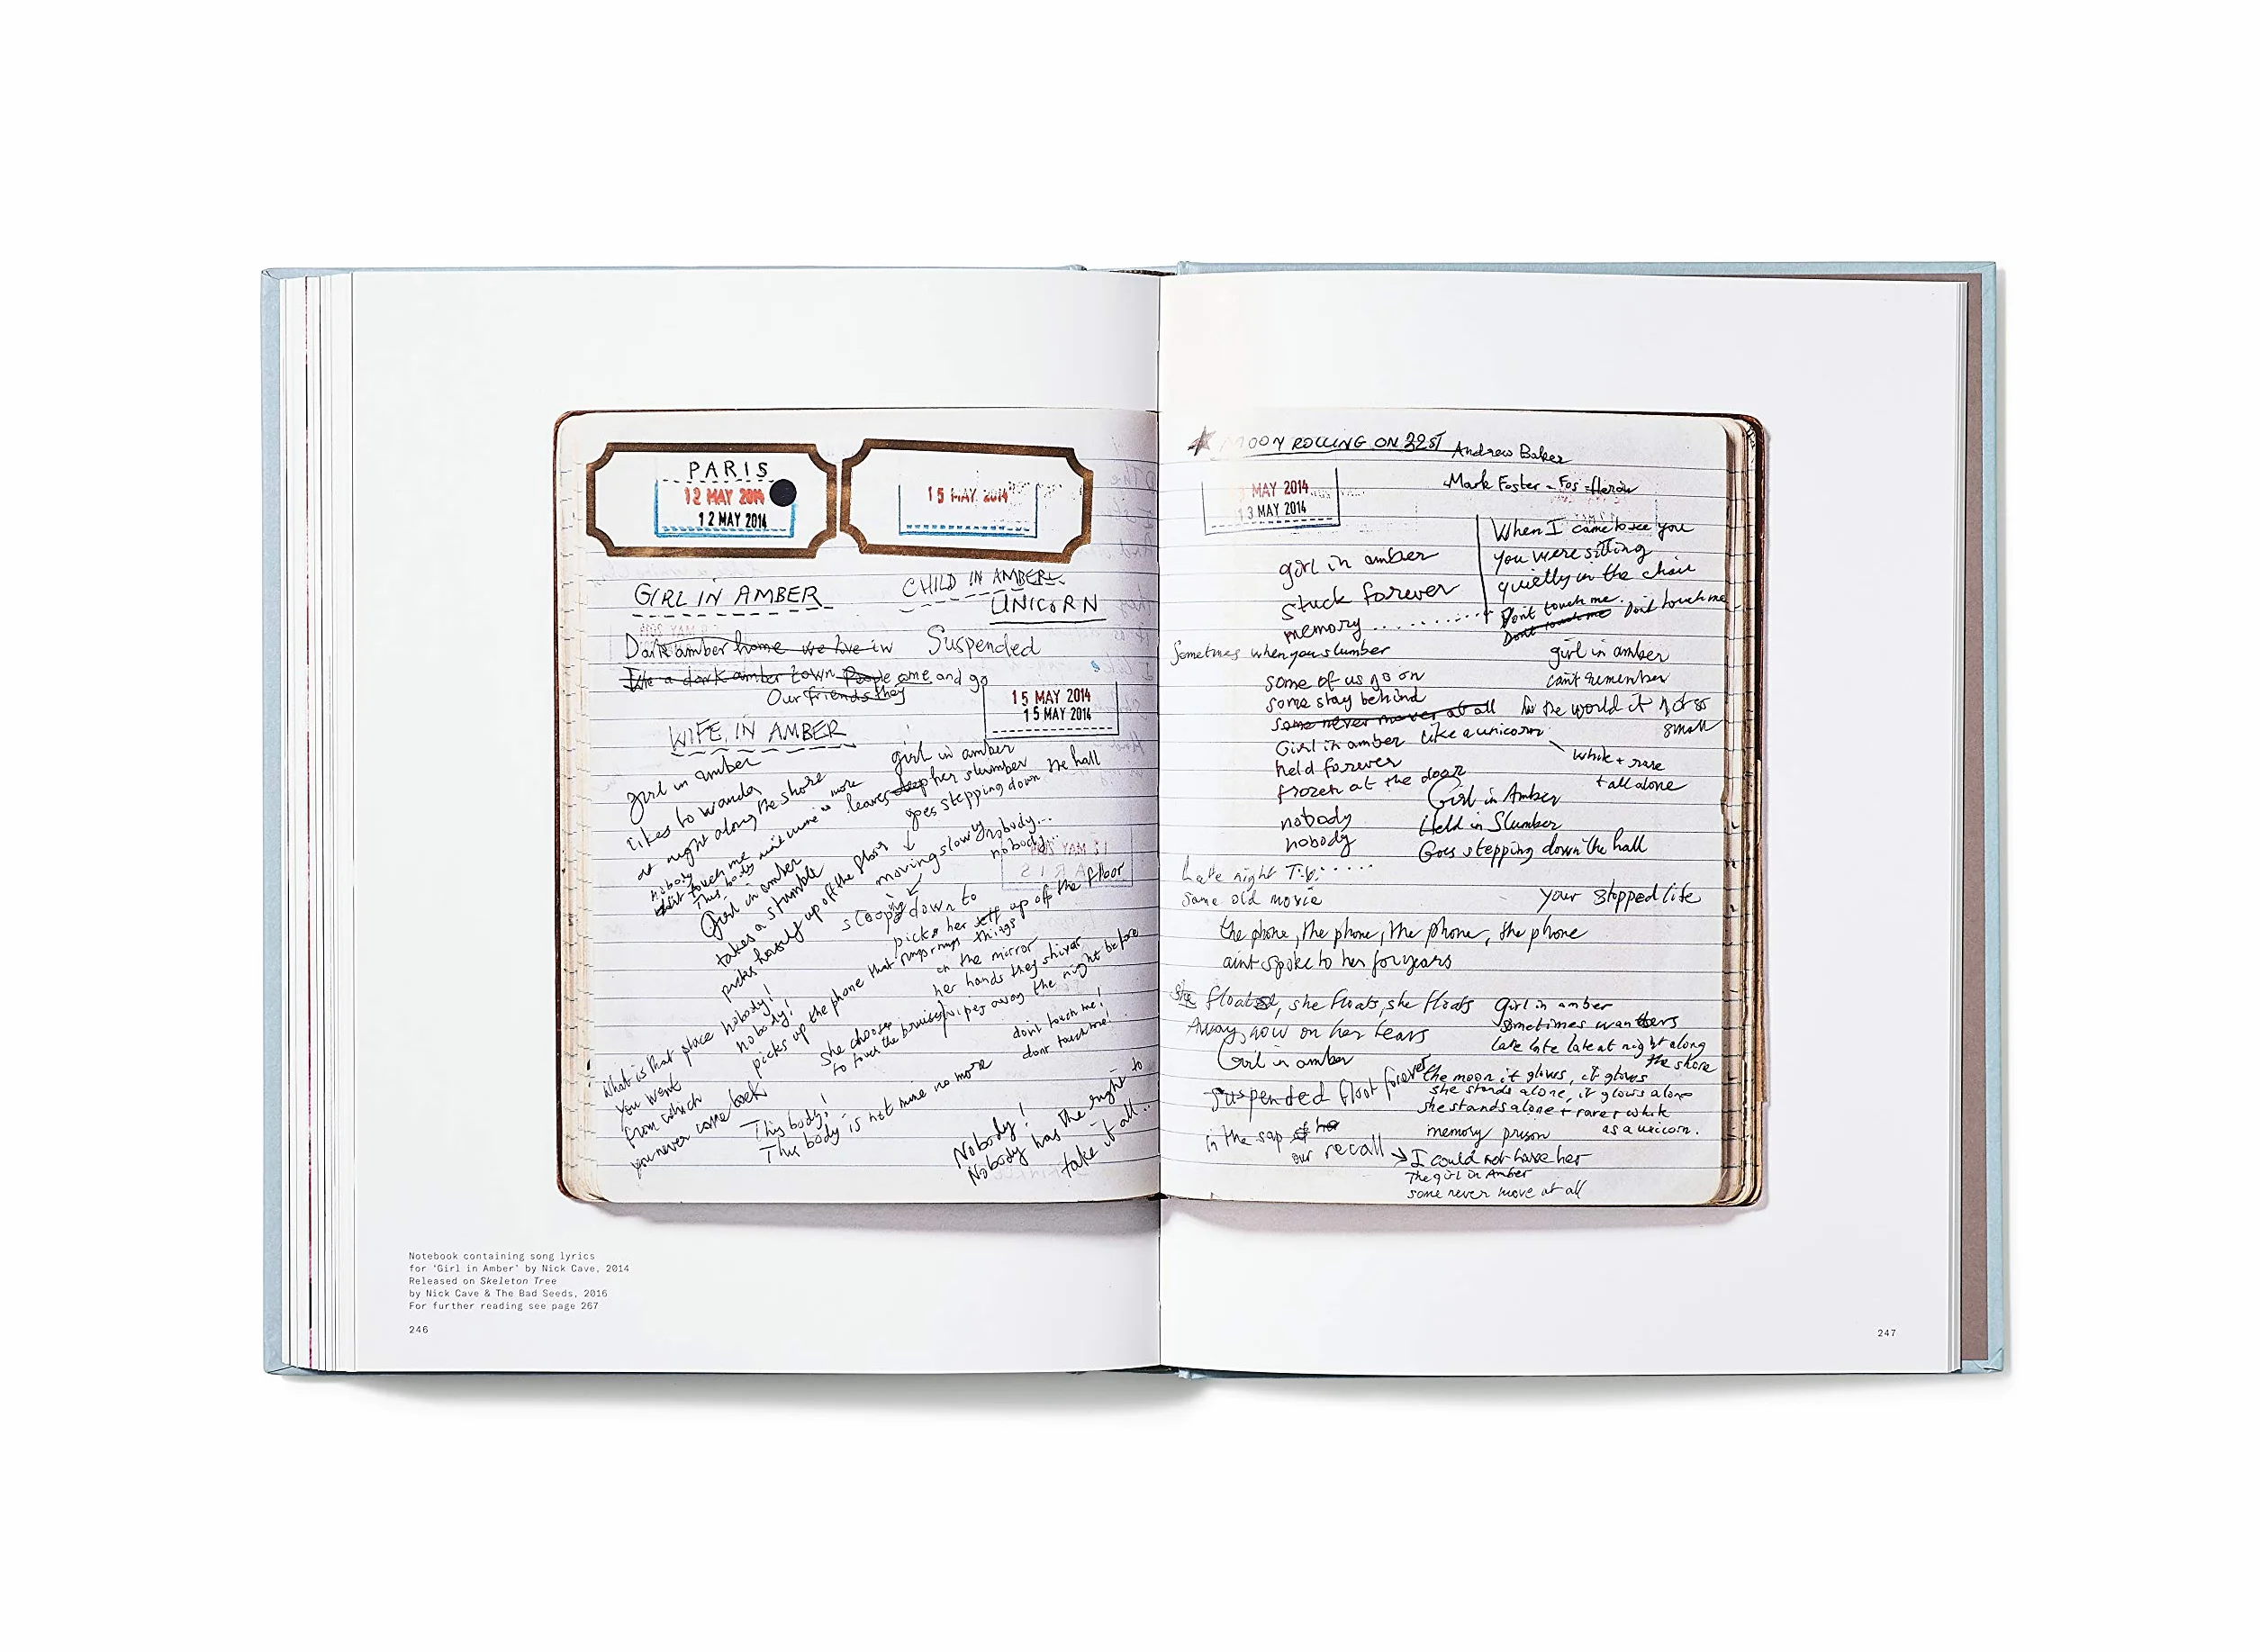 PARIS
12 MAY 2014
12 MAY 2014
15 MAY 2014
GIRL IN AMBER
CHILD IN AMBER
UNICORN
Dark amber home we live in
Suspended
like a dark amber town People come and go
Our friends they
15 MAY 2014
15 MAY 2014
WIFE IN AMBER
girl in amber
likes to wander
at night along the shore
nobody
dont touch me
This body aint mine no more
girl in amber
leaves deep her slumber
goes stepping down the hall
moving slowly nobody...
nobody...
Girl in amber
takes a stumble
picks herself up off the floor
stoops down to
picks her self up off the floor
things
nobody!
nobody!
picks up the phone that rings rings
on the mirror
her hands they shiver
wipes away the night before
She chooses
to touch the bruises
dont touch me!
dont touch me!
What is that place
You went
from which
you never come back
This body!
This body is not mine no more
Nobody!
Nobody has the right to
take it all...
MOON ROLLING ON 32ST
Andrew Baker
Mark Foster - Fos -
MAY 2014
13 MAY 2014
girl in amber
stuck forever
memory..........
When I came to see you
you were sitting
quietly in the chair
Dont touch me.
Dont touch me Dont touch me
Sometimes when you slumber
girl in amber
cant remember
some of us go on
some stay behind
some never move at all
the world it not so
small
Girl in amber like a unicorn
white + rare
+ all alone
held forever
frozen at the door
nobody
nobody
Girl in Amber
Held in Slumber
Goes stepping down the hall
Late night T.V......
same old movie
your stopped life
the phone, the phone, the phone, the phone
aint spoke to her for years
She floats, she floats, she floats
Away, now on her tears
Girl in amber
girl in amber
sometimes wanders
late late late at night along
the shore
Suspended float forever
the moon it glows, it glows
she stands alone, it glows alone
she stands alone + rare + white
as a unicorn.
memory prison
in the sap of her
our recall
I could not have her
The girl in Amber
some never move at all
Notebook containing song lyrics
for 'Girl in Amber' by Nick Cave, 2014
Released on Skeleton Tree
by Nick Cave & The Bad Seeds, 2016
For further reading see page 267
246
247